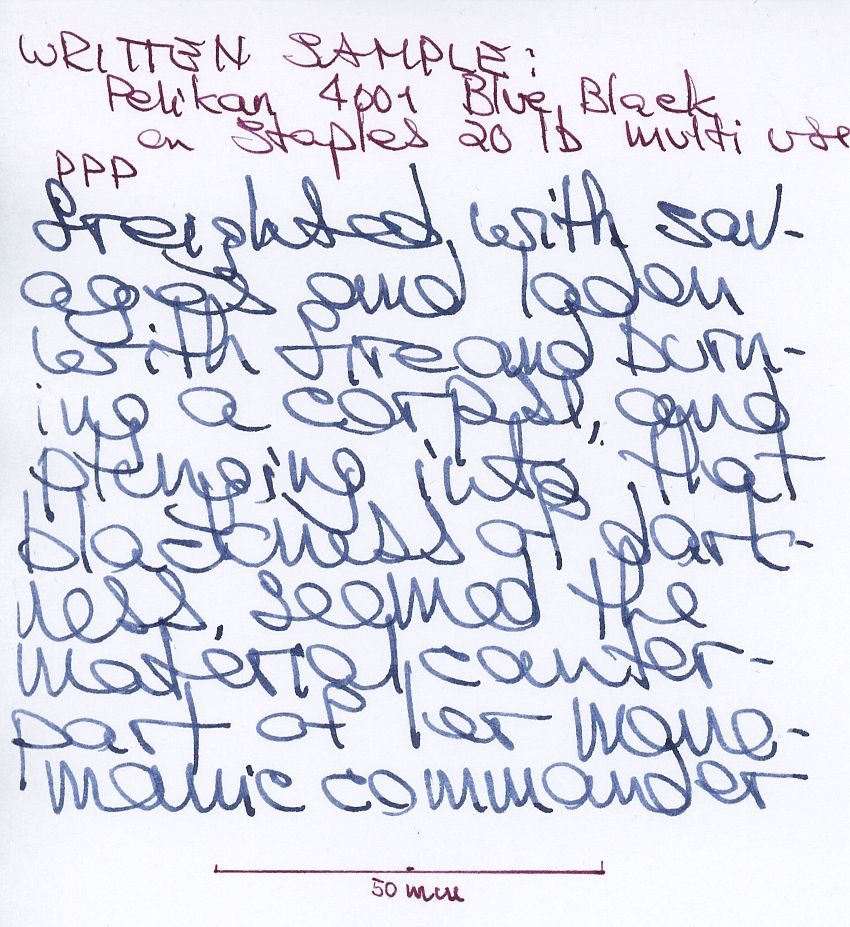 WRITTEN SAMPLE:
Pelikan 4001 Blue Black
on Staples 20 lb multi use
PPP
freighted with sav-
ages and laden
with fire and burn-
ing a corpse, and
plunging into that
blackness of dark-
ness, seemed the
material counter-
part of her mono-
manic commander
50 mm